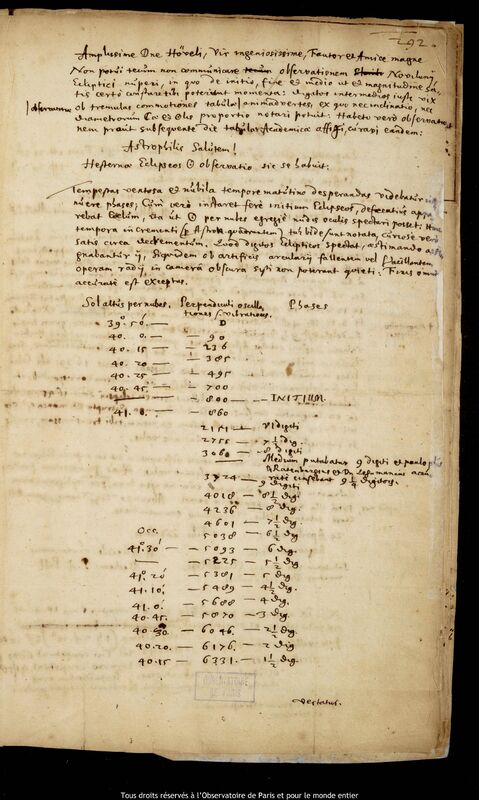 292.
Amplissime Dne Höveli, Vir ingeniosissime, Fautor et Amice magne
Non potui tecum non communicare tecum observationem Novilunij
Ecliptici nuperi, in quo de initio, fine et medio ut et magnitudine sa
tis certò constare poterint momenta: digitos intermedios iustè vix
observavimus
ob tremulas commotiones tabulae animadvertes, ex quo nec inclinatio, nec
diametrorum et proportio notari potuit. Habetis verò observatio
nem prout subsequente die tabulae Academicae affigi curavi eandem:
Astrophilis Salutem!
Hesternae Eclipseos ☉ observatio sic se habuit:
Tempestas ventosa et nubila tempore matutino desperandas videbatur
nuere phases; Cum verò instaret ferè initium Eclipseos, defaecatius appa
rebat Coelum, ita ut ☉ per nubes egregiè nudis oculis spectari posset: Hinc
tempora incrementi notata, curiosè verò
satis circa decrementum. Quod digitos Eclipticos spectat, aestimando assi
gnabantur ij, siquidem ob artificis acularij fallentem vel vacillantem
operam radij in camerâ obscurâ sisti non poterant quieti: Finis omni
accuratè est exceptus.
Sol altus per nubes. Perpendiculi oscilla Phases
tiones s. vibrationes.
39° 50' — 0
40. 0. — 90
40. 15 — 236
40. 20 — 385
40. 25 — 495
40. 45. — 700
— 800 — INITIUM.
41. 0. — 860
2151 — VI digiti
2755 — 7 1/2 dig.
3060 — 8 digiti
Medium putabatur 9 digiti et paulo plus
Ratenburgius et Dn. Lehmannus accu
ratè censebant 9 1/4 digitos.
3724 — 9 digiti
4018 — 8 1/2 dig.
4236 — 8 dig.
4601 — 7 1/2 dig.
Occ. 5038 — 6 1/2 dig
41° 30' — 5093 — 6 dig.
— 5225 — 5 1/2 dig
41° 20' — 5381 — 5 dig
41. 10. — 5489 — 4 1/2 dig.
41. 0. — 5688 — 4 dig.
40. 45. — 5870 — 3 dig.
40. 30. — 6046. — 2 1/2 dig
40. 20. — 6176. — 2 dig
40. 15 — 6331. — 1 1/2 dig.
OBSERVATOIRE
DE PARIS
Restatus.
Tous droits réservés à l'Observatoire de Paris et pour le monde entier